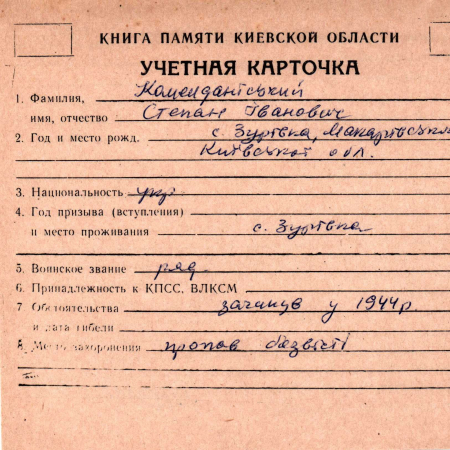 КНИГА ПАМЯТИ КИЕВСКОЙ ОБЛАСТИ
УЧЕТНАЯ КАРТОЧКА
1. Фамилия, Комендантський
имя, отчество Степан Іванович
2. Год и место рожд. с. Зурівка, Макарівського
Київської обл.
3. Национальность укр
4. Год призыва (вступления)
и место проживания с. Зурівка
5. Воинское звание ряд
6. Принадлежность к КПСС, ВЛКСМ
7 Обстоятельства загинув у 1944 р.
и дата гибели
8. Место захоронения пропав безвісті